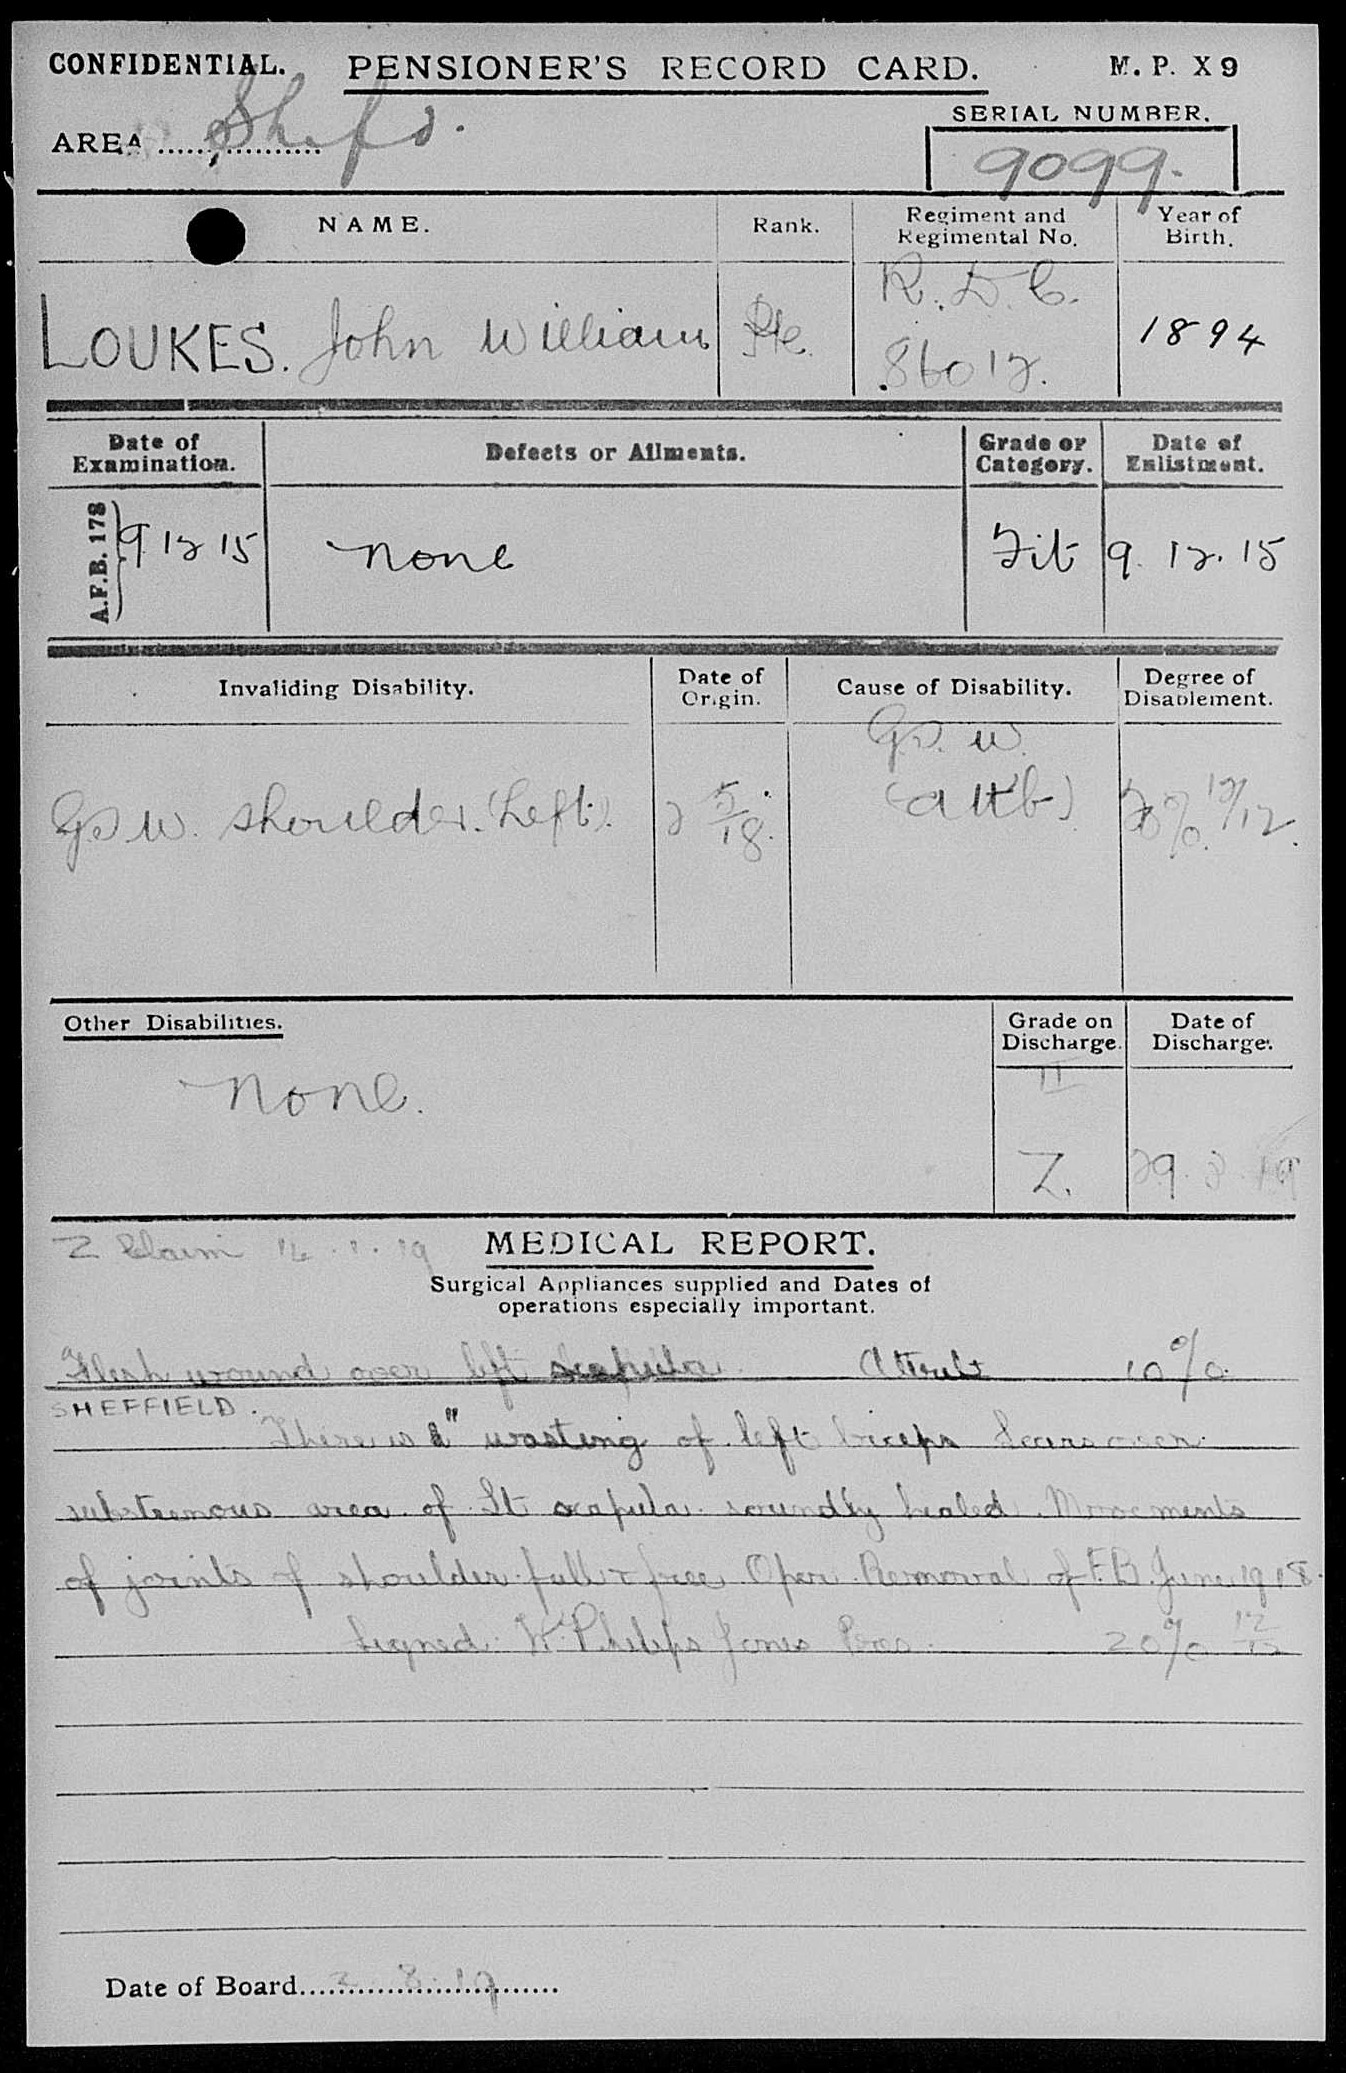 CONFIDENTIAL. PENSIONER'S RECORD CARD. M. P. X 9
AREA Shefd.
SERIAL NUMBER.
9099.
NAME. Rank. Regiment and Regimental No. Year of Birth.
LOUKES. John William Pte. R.D.C. 86012. 1894
Date of Examination. Defects or Ailments. Grade or Category. Date of Enlistment.
A.F.B. 178 9 12 15 None Fit 9. 12. 15
Invaliding Disability. Date of Origin. Cause of Disability. Degree of Disablement.
G.S.W. shoulder. (Left). 2 5/18. G.S.W. (attb) 20% 12/12.
Other Disabilities. Grade on Discharge. Date of Discharge.
None. II
Z. 29. 3. 19
Z Claim 14. 1. 19 MEDICAL REPORT.
Surgical Appliances supplied and Dates of
operations especially important.
Flesh wound over left scapula. Attrib 10%.
SHEFFIELD.
There is wasting of left biceps Scars over
area of Lt scapula soundly healed. Movements
of joints of shoulder full & free Oper. Removal of F.B. June 1918.
Signed. W. Phelps Jones Pres. 20% 12/12
Date of Board 2 8. 19